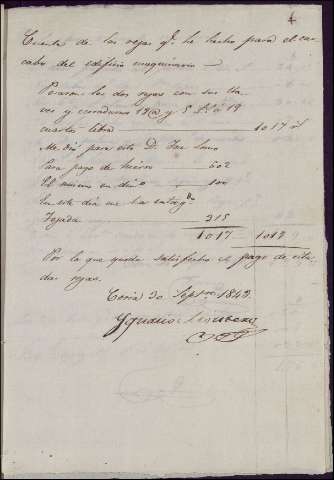 4
Cuenta de las rejas q.e he hecho para el
del edificio maquinaria
Pesaron las dos rejas con sus lla-
ves y cerraduras 13@ y 5 á 19
cuartos libra 1017
Me dió para esto D. Jose
Para pago de hierro 602
El mismo en dinº 100
En este dia me ha entreg.do
Tejada 315
1017 1017
Por lo que queda satisfecho el pago de
rejas.
Coria 30 Sept.re 1843.
Ygnacio